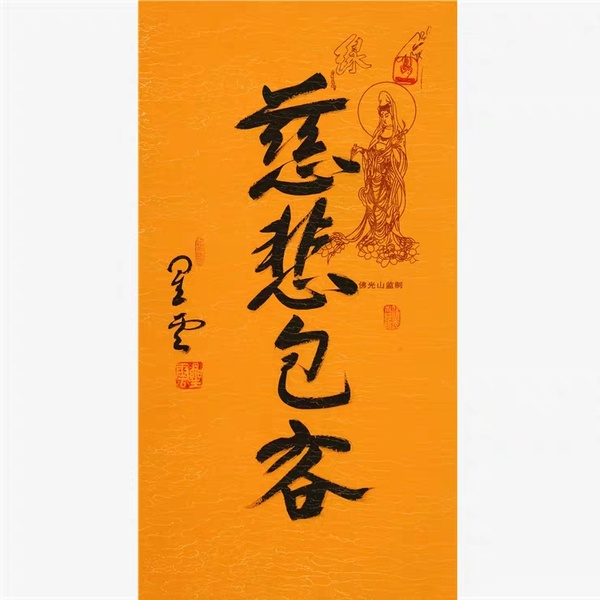 慈悲包容
佛光山监制
星雲